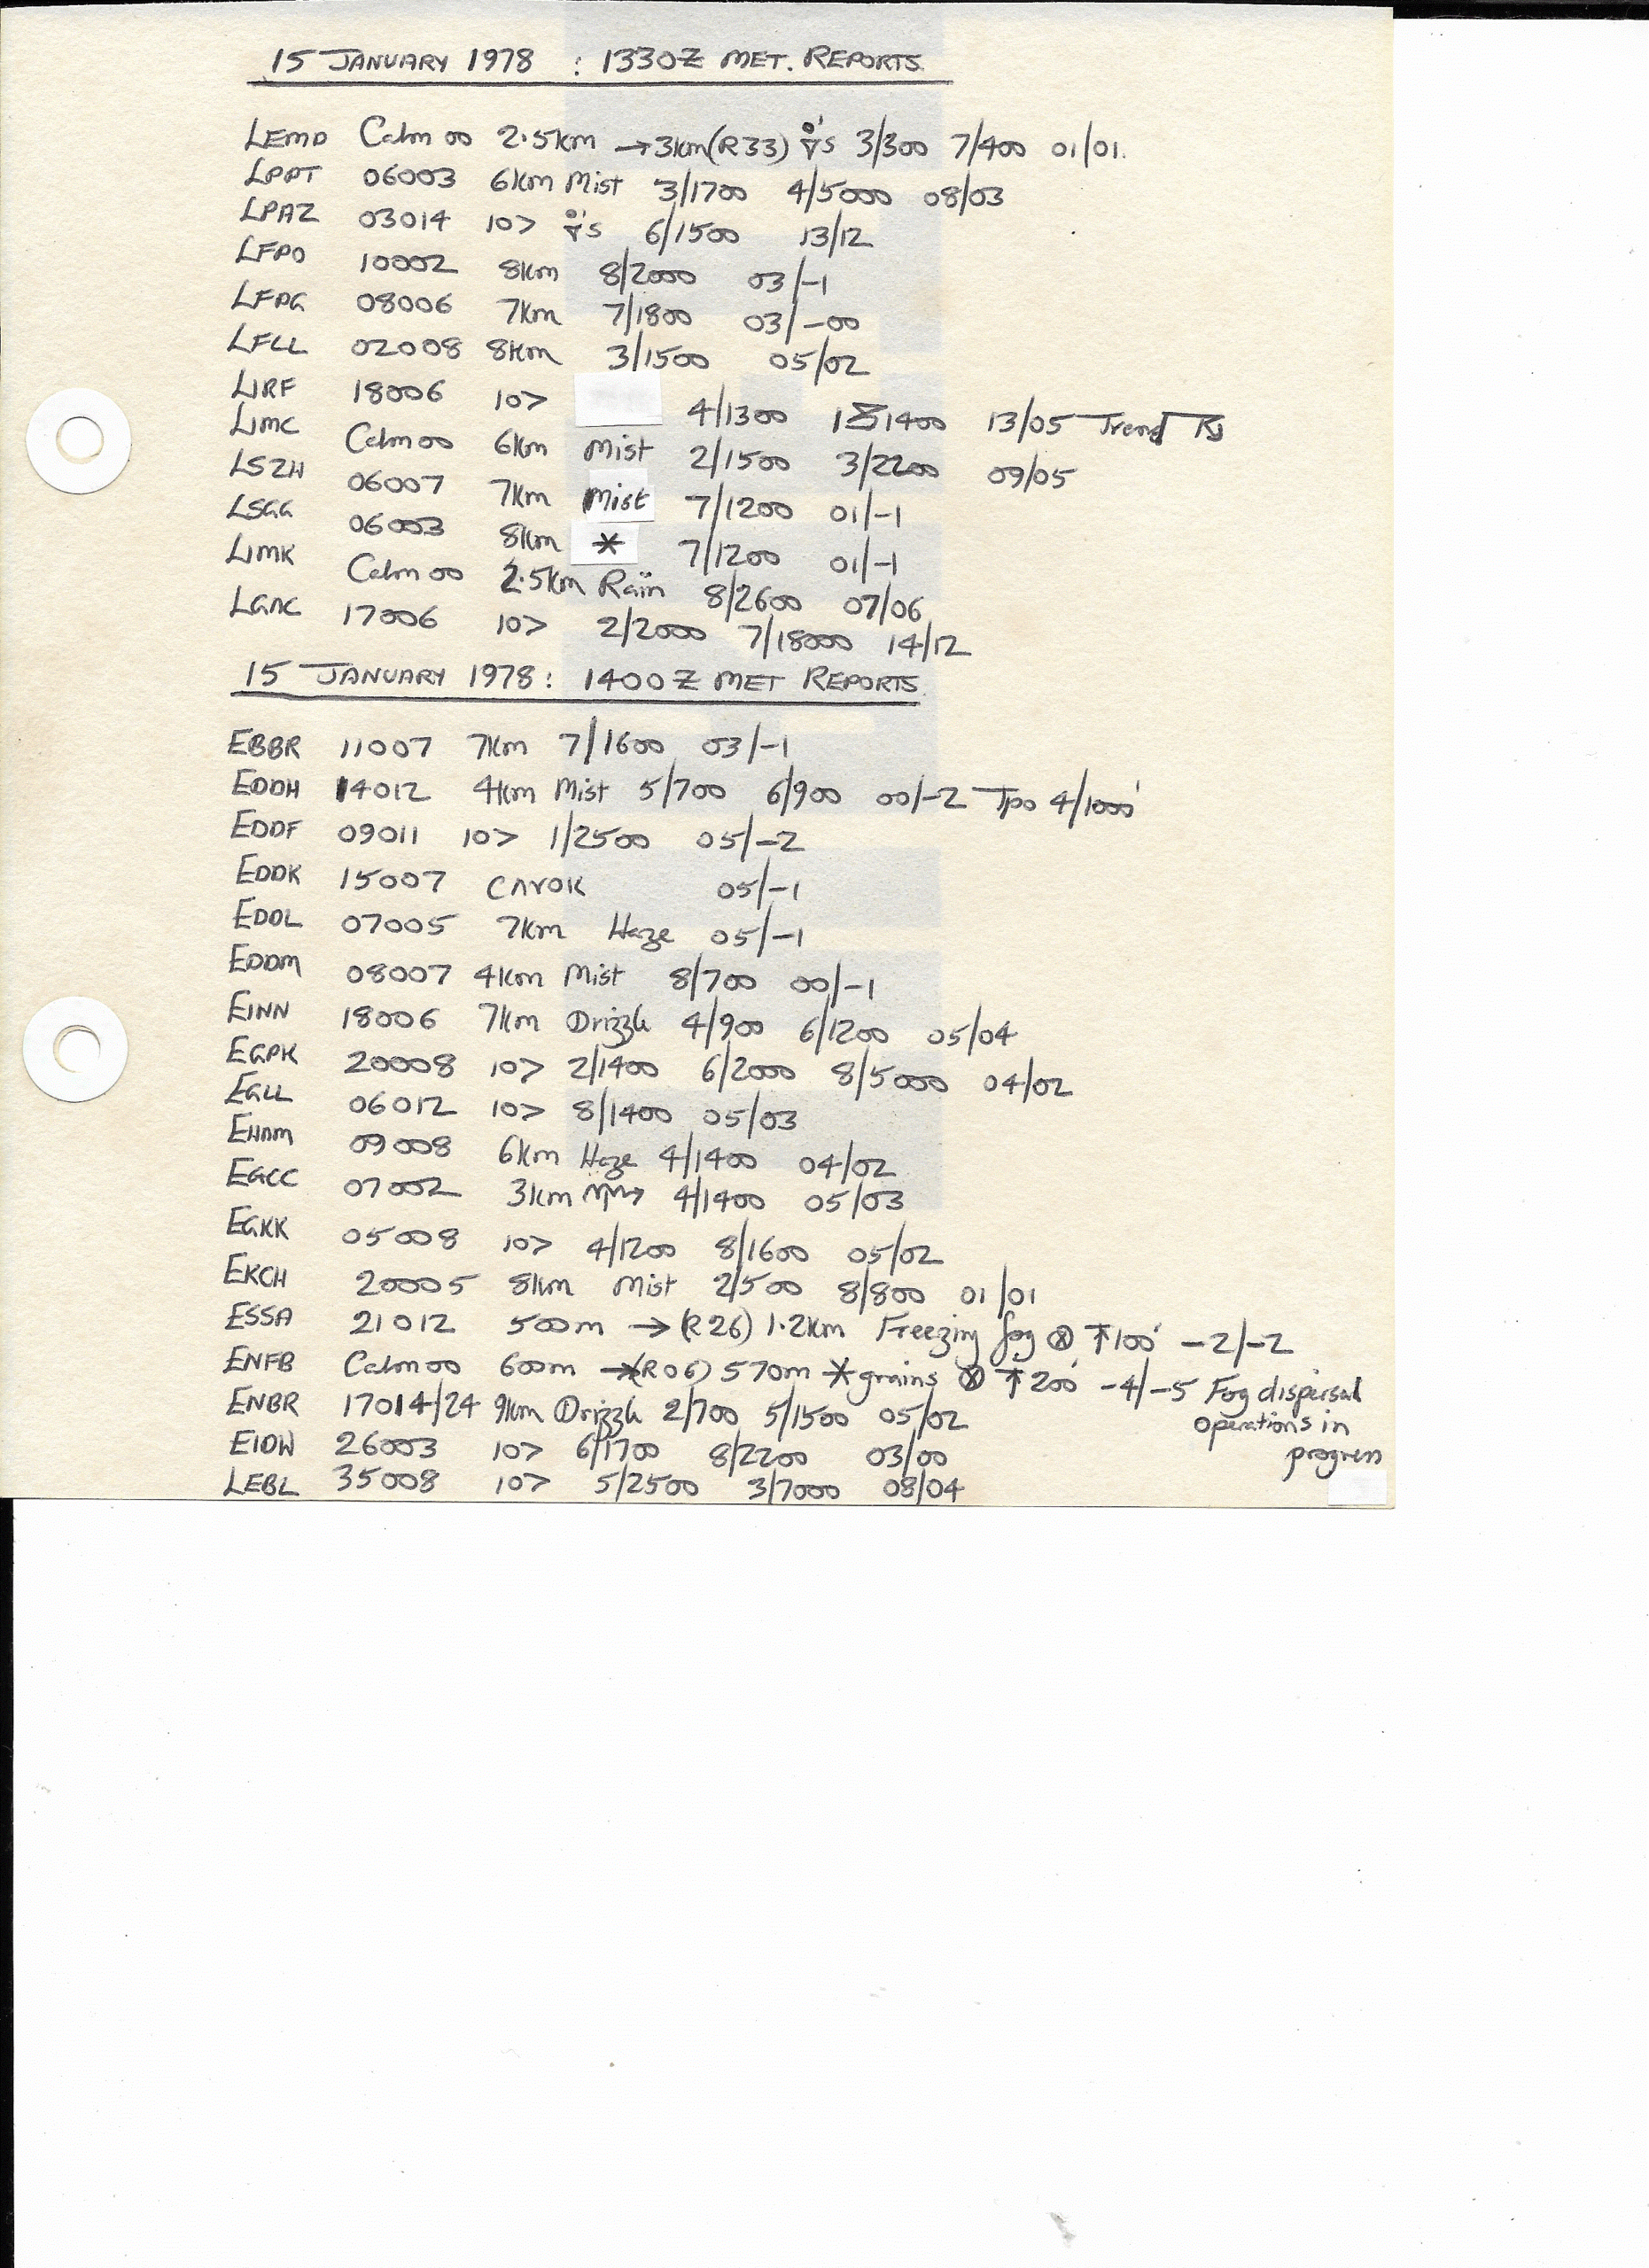 15 JANUARY 1978 : 1330Z MET. REPORTS.
LEMD Calm 00 2.5km →3km(R33) 's 3/300 7/400 01/01.
LPPT 06003 6km Mist 3/1700 4/5000 08/03
LPAZ 03014 10> 's 6/1500 13/12
LFPO 10002 8km 8/2000 03/-1
LFPG 08006 7km 7/1800 03/-00
LFLL 02008 8km 3/1500 05/02
LIRF 18006 10> 4/1300 1400 13/05 Trend
LIMC Calm 00 6km Mist 2/1500 3/2200 09/05
LSZH 06007 7km Mist 7/1200 01/-1
LSGG 06003 8km * 7/1200 01/-1
LIMK Calm 00 2.5km Rain 8/2600 07/06
17006 10> 2/2000 7/18000 14/12
15 JANUARY 1978: 1400Z MET REPORTS.
EBBR 11007 7km 7/1600 03/-1
EDDH 14012 4km Mist 5/700 6/900 00/-2 Tpo 4/1000'
EDDF 09011 10> 1/2500 05/-2
EDDK 15007 CAVOK 05/-1
EDDL 07005 7km Haze 05/-1
EDDM 08007 4km Mist 8/700 00/-1
EINN 18006 7km Drizzle 4/900 6/1200 05/04
EGPK 20008 10> 2/1400 6/2000 8/5000 04/02
EGLL 06012 10> 8/1400 05/03
EHAM 09008 6km Haze 4/1400 04/02
EGCC 07002 3km 4/1400 05/03
EGKK 05008 10> 4/1200 8/1600 05/02
EKCH 20005 8km Mist 2/500 8/800 01/01
ESSA 21012 500m →(R26) 1.2km Freezing fog ⊗ ↑100' -2/-2
ENFB Calm 00 600m →(R06) 570m *grains ⊗ ↑200' -4/-5 Fog dispersal
operations in
progress
ENBR 17014/24 9km Drizzle 2/700 5/1500 05/02
EIDW 26003 10> 6/1700 8/2200 03/00
LEBL 35008 10> 5/2500 3/7000 08/04